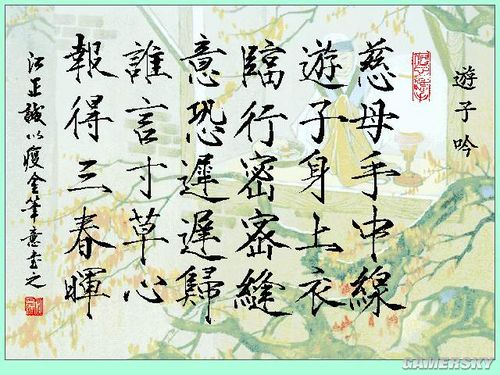 遊子吟
慈母手中線
遊子身上衣
臨行密密縫
意恐遲遲歸
誰言寸草心
報得三春暉
江正誠以瘦金筆意書之
GAMERSKY